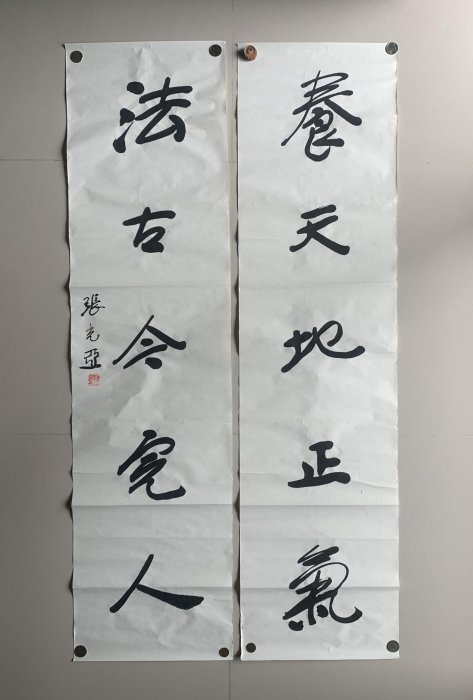 養天地正氣
法古今完人
張光亞